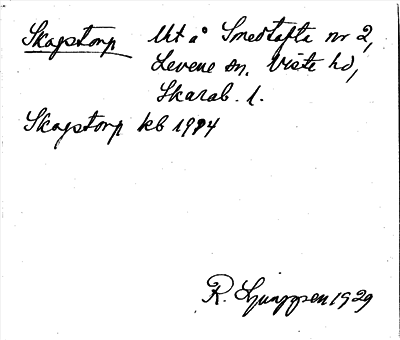 Skogstorp lht å Smedtofta nr 2,
Levene sn, Viste hd,
Skarab. l.
Skogstorp kb 1994
R. Ljunggren 1929